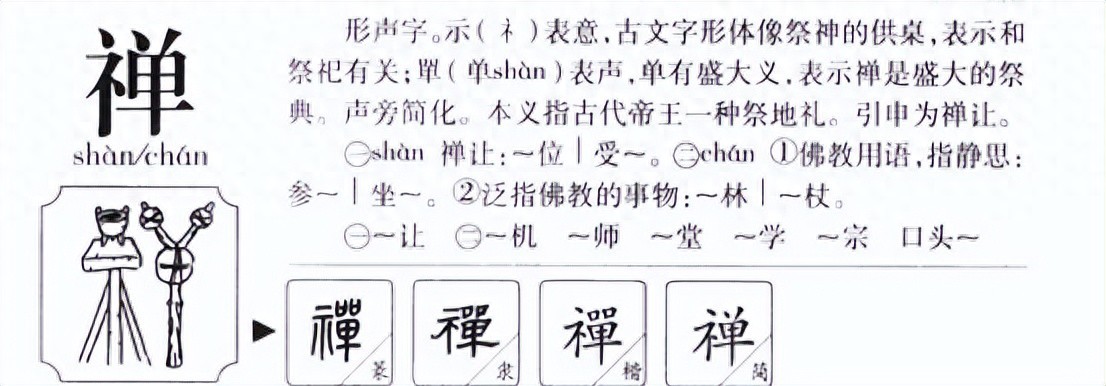 禅
shàn/chán
形声字。示(礻)表意,古文字形体像祭神的供桌,表示和
祭祀有关;單(单shàn)表声,单有盛大义,表示禅是盛大的祭
典。声旁简化。本义指古代帝王一种祭地礼。引申为禅让。
㊀shàn 禅让:~位|受~。㊁chán ①佛教用语,指静思:
参~|坐~。②泛指佛教的事物:~林|~杖。
㊀~让 ㊁~机 ~师 ~堂 ~学 ~宗 口头~
禪 篆 禪 隶 禪 楷 禅 简